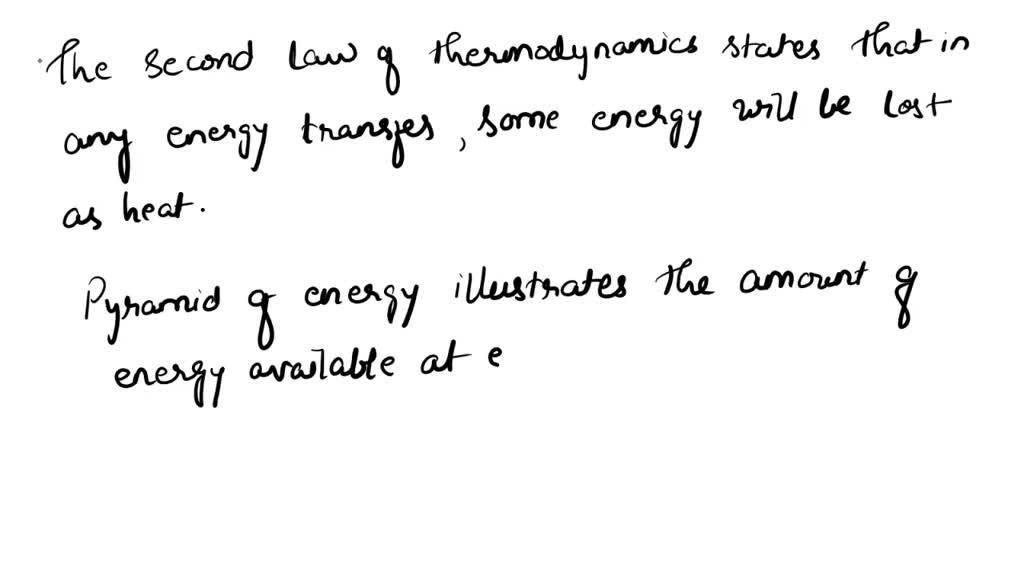 The second Law of thermodynamics states that in
any energy transfes, some energy will be lost
as heat.
Pyramid of energy illustrates the amount of
energy available at e